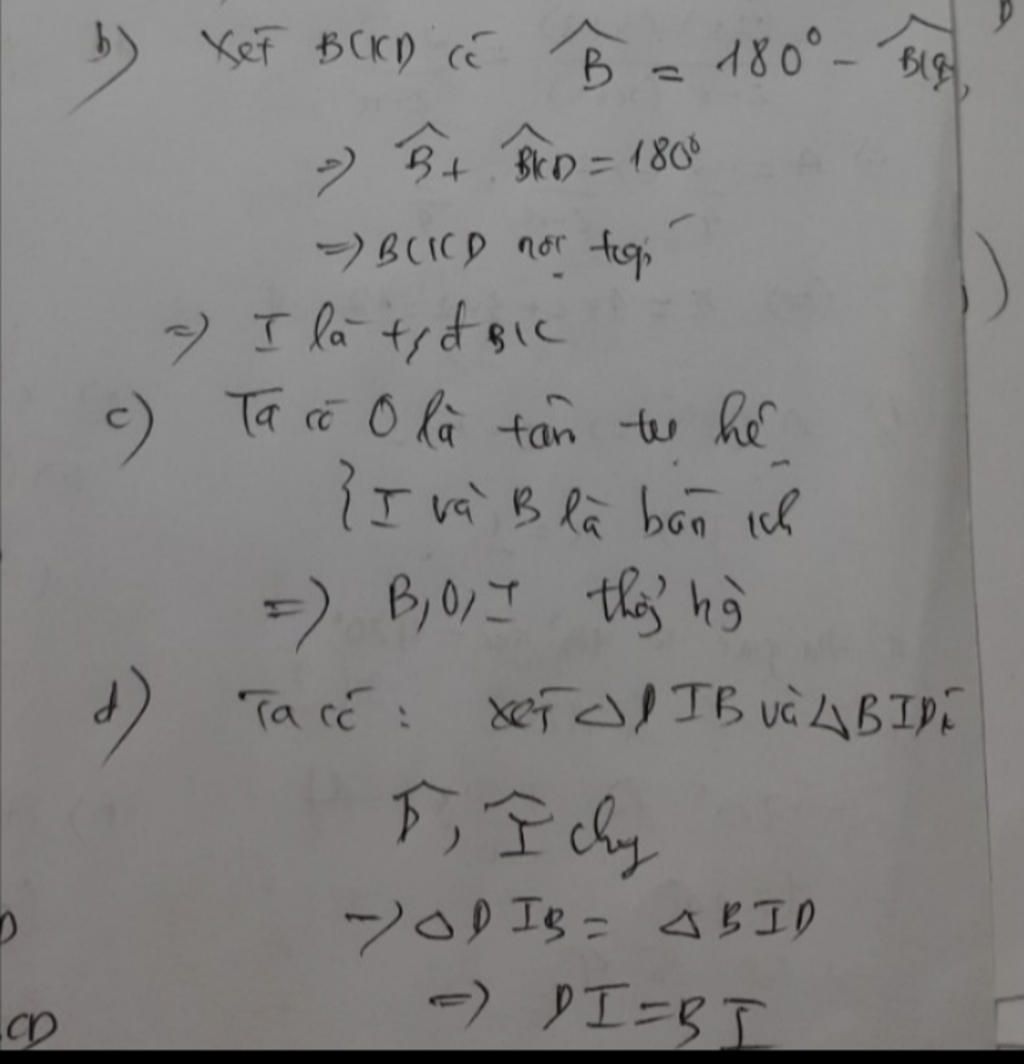 b) Xét BCKD có B̂ = 180° -
=> B̂ + BKD = 180°
=> BCKD nội tiếp
=> I là t/đ BIC
c) Ta có O là tân tụ hệ
} I và B là bán ích
=> B, O, I thẳg hg
d) Ta có : xét △DIB và △BID
D̂, Î chg
-> △DIB = △BID
=> DI = BI
CD